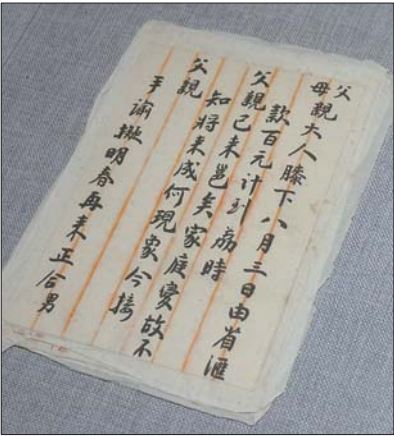 父母親大人膝下八月三日由省滙
款百元計到荔時
父親已来邕矣家庭變故不
知將来成何現象今接
父親
手諭擬明春再来正合男